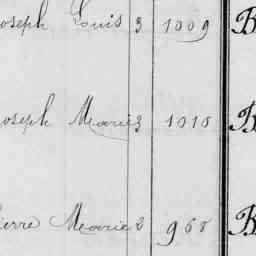 oseph Louis 3 1009 B
oseph Marie 3 1010 B
ierre Marie 2 968 B